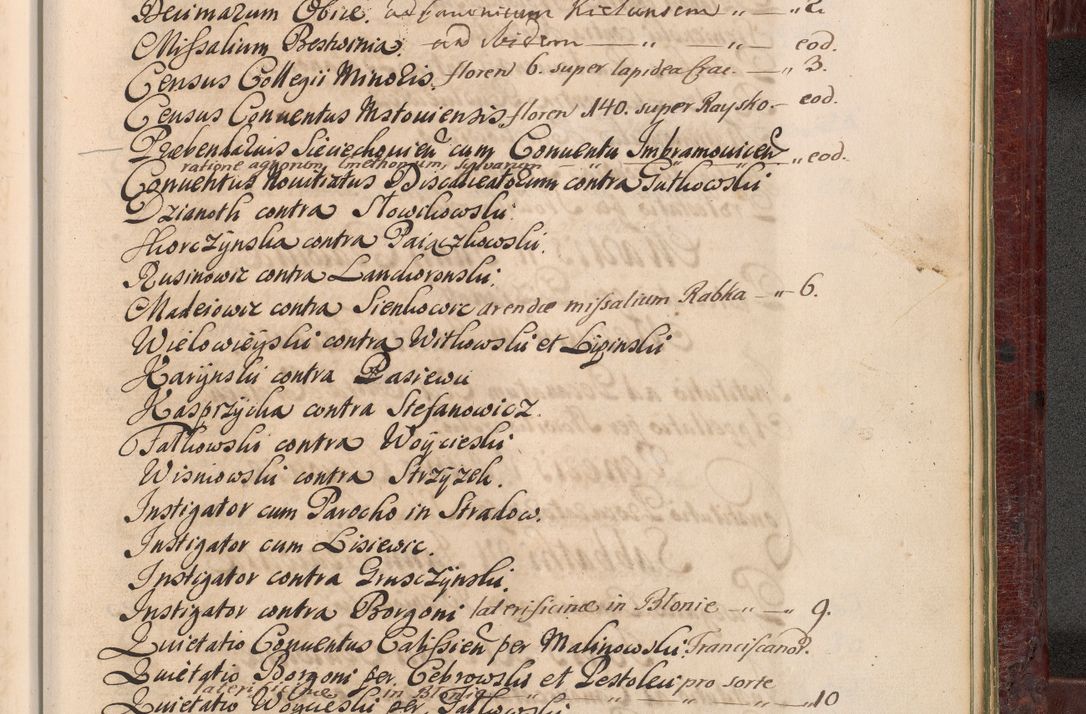 Decimarum Obice. ad Canonicum Kielcensem „ — „ 2.
Missalium Beskornia. ad Ibidem — „ — „ — eod.
Census Collegii Minoris. floren 6. super lapidea frac. — „ 3.
Census Conventus Mstoviensis, floren 140. super Raysko. — eod.
Præbendarius Sieciechovień cum Conventu Imbramoviceń
ratione agrorum, Cmethonum, Sylvarum — „ — „ eod.
Conventus Novitiatus Discalceatorum contra Gutkowski
Dzianoth contra Slowikowski.
Skorczÿnska contra Paiączkowski.
Rusinowic contra Lanckoronski.
Madeiowic contra Sienkowic arendæ missalium Rabka — „ — 6.
Wielowieÿski contra Witkowski et Lipinski
Karÿnski contra Pasiewic
Kasprzÿcka contra Stefanowicz.
Patkowski contra Woÿcieski
Wisniowski contra Strzÿzek.
Instigator cum Parocho in Stradow.
Instigator cum Lisiewic.
Instigator contra Gruszÿnski.
Instigator contra Borgoni laterificinæ in Blonie — „ — „ 9.
Quietatio Conventus Calissień per Malinowski. Franciscanor.
Quietatio Borgoni per Cebrowski et Pestoleci pro sorte
laterificinæ in Blonie — „ — „ — „ 10
Quietatio Woÿcieski per Patkowski